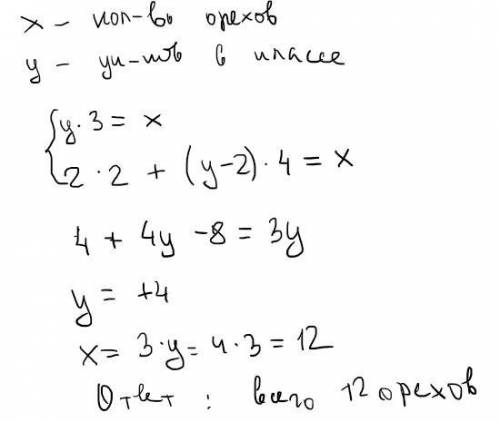 x - кол-во орехов
y - уч-ков в классе
y·3 = x
2·2 + (y-2)·4 = x
4 + 4y -8 = 3y
y = +4
x = 3·y = 4·3 = 12
Ответ : всего 12 орехов